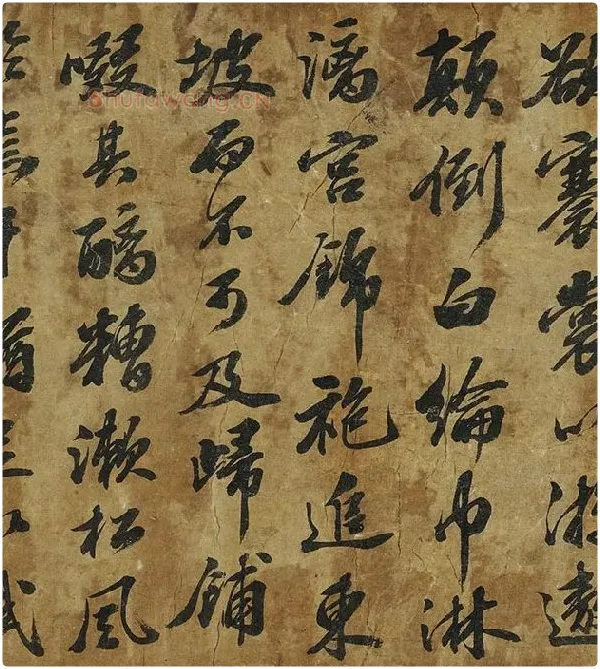 欲褰裳以游遨
顛倒白綸巾淋
漓宮錦袍追東
坡而不可及歸餔
啜其醨糟漱松風